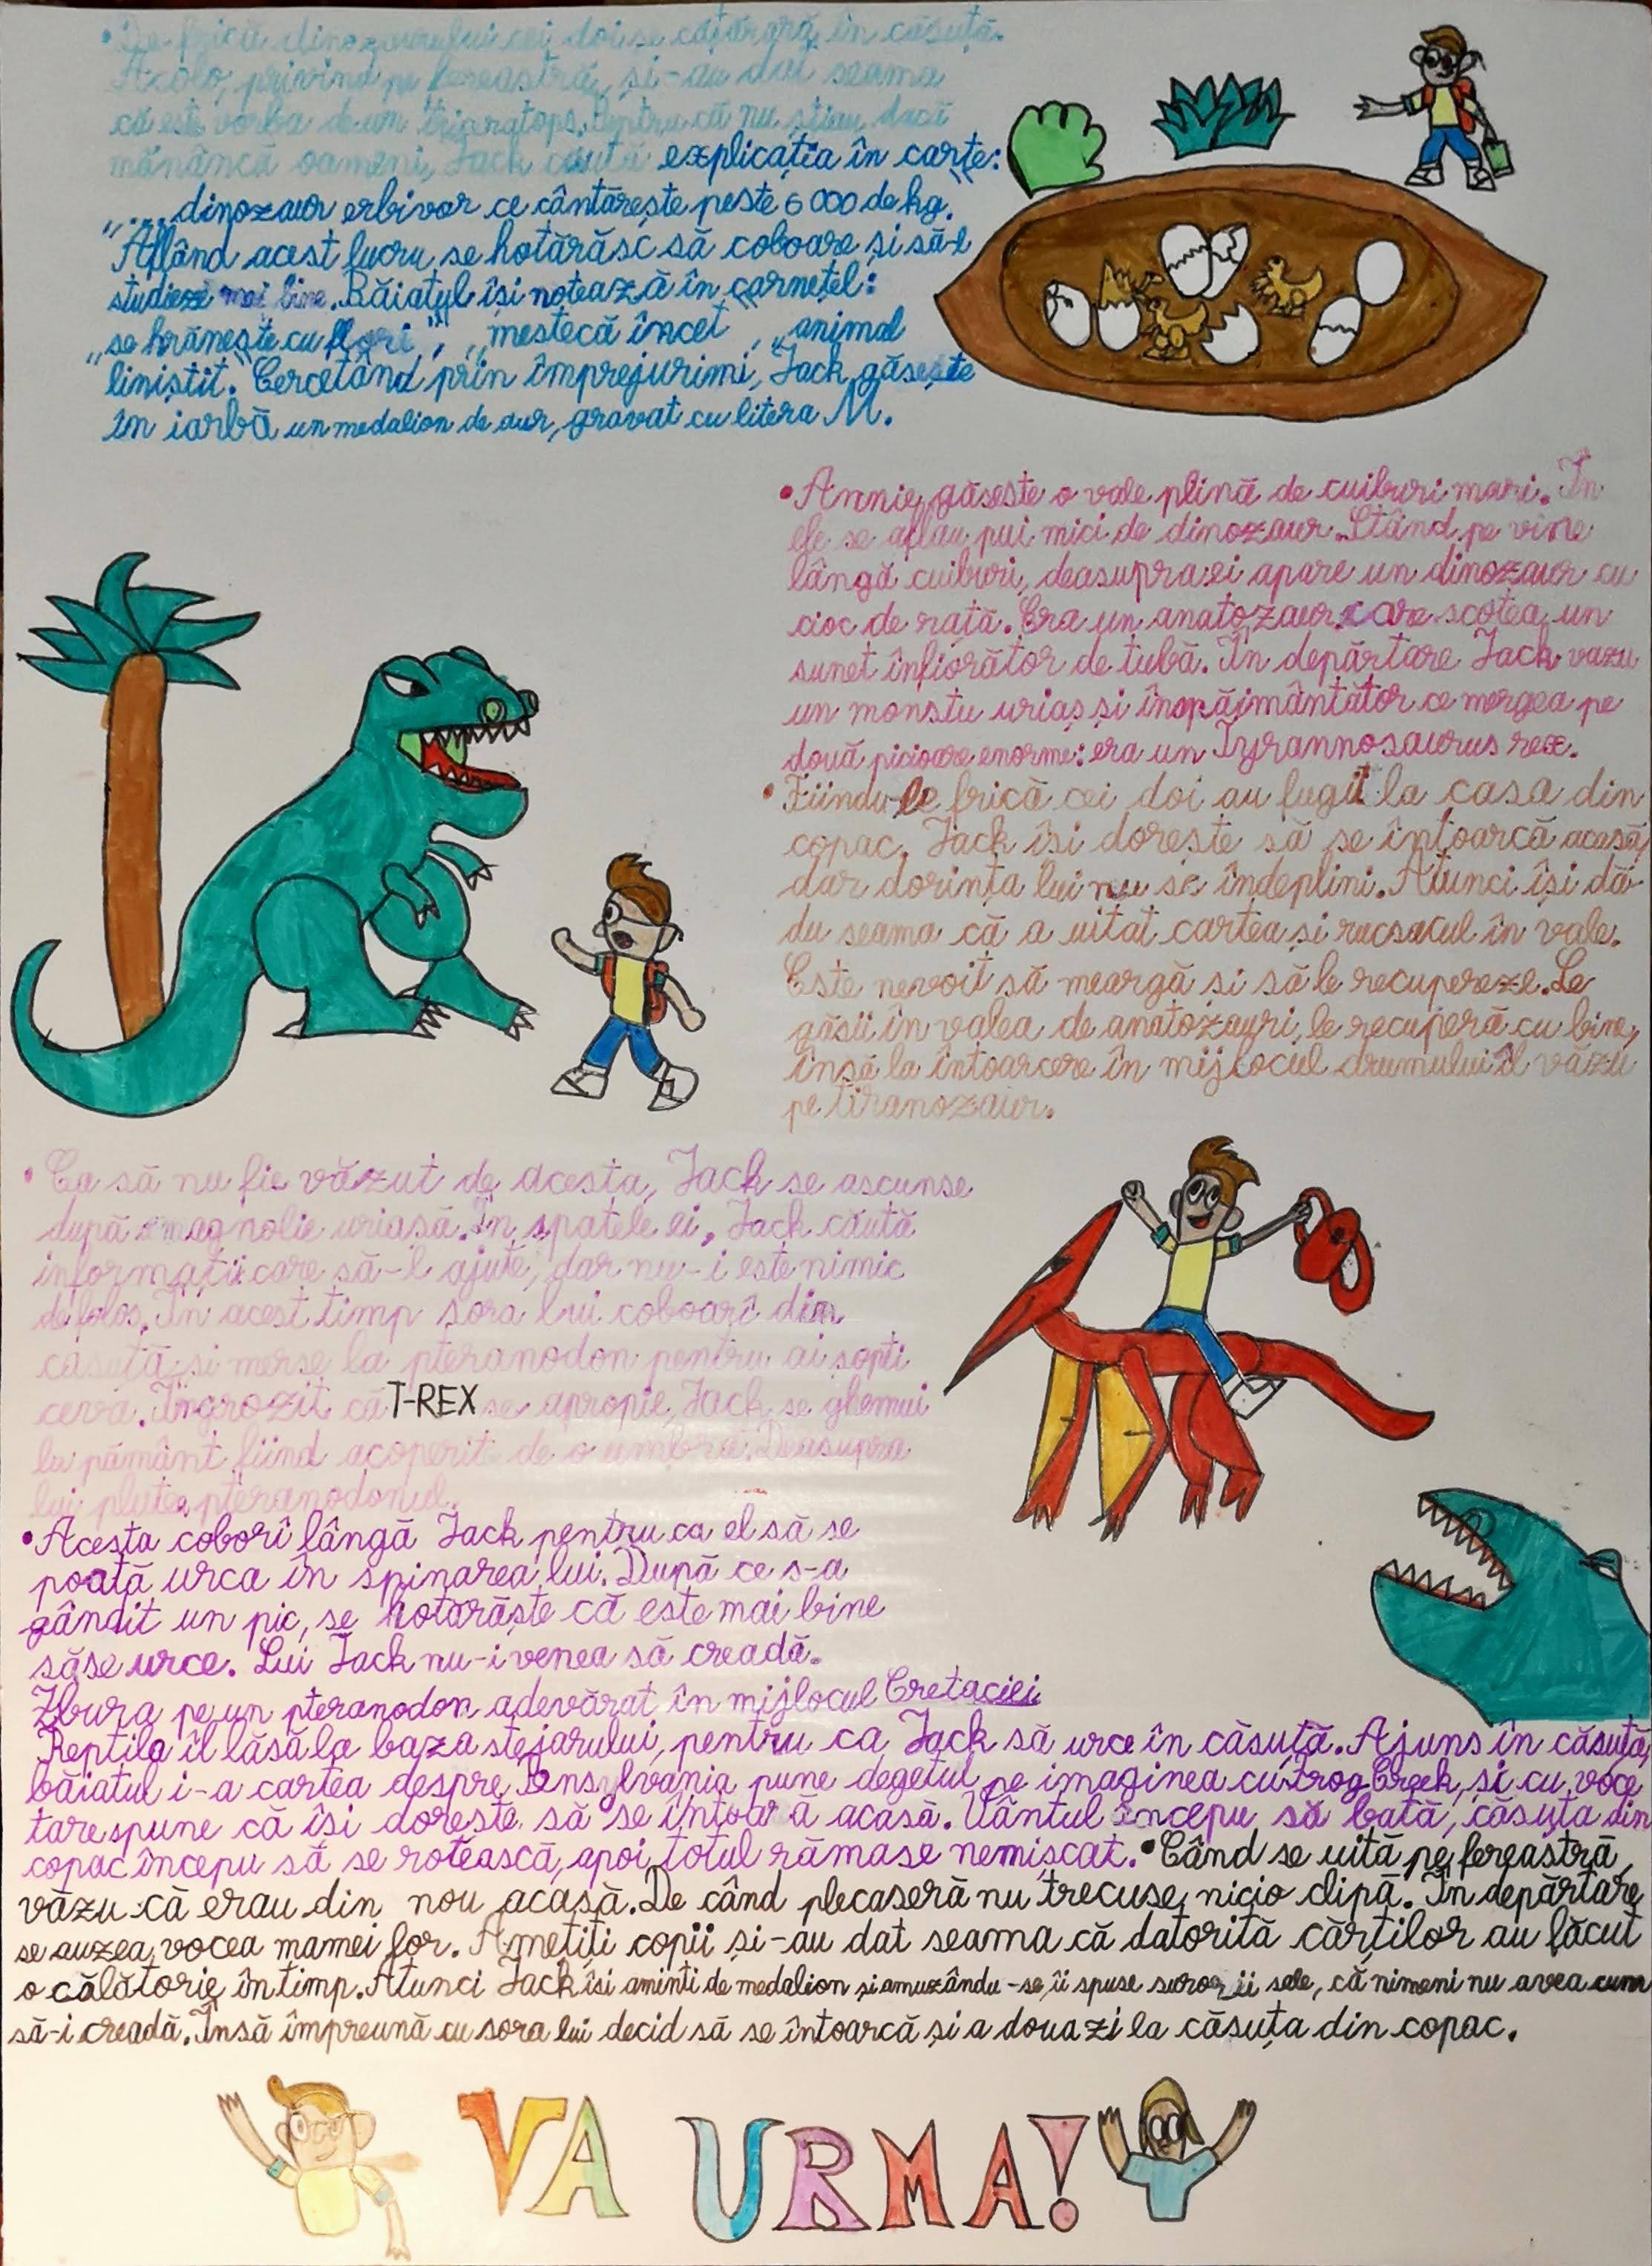 • De frică dinozaurului cei doi se cățărară în căsuță.
Acolo, privind pe fereastră, și-au dat seama
că este vorba de un triceratops. Pentru că nu știau dacă
mănâncă oameni, Jack caută explicația în carte:
"... dinozaur erbivor ce cântărește peste 6000 de kg."
Aflând acest lucru, se hotărăsc să coboare și să-l
studieze mai bine. Băiatul își notează în carnețel:
„se hrănește cu flori", „mestecă încet", „animal
liniștit." Cercetând prin împrejurimi, Jack găsește
în iarbă un medalion de aur, gravat cu litera M.
• Annie găsește o vale plină de cuiburi mari. În
ele se aflau pui mici de dinozaur. Stând pe vine
lângă cuiburi, deasupra ei apare un dinozaur cu
cioc de rață. Era un anatozaur care scotea un
sunet înfiorător de tubă. În depărtare Jack vazu
un monstu uriaș și înspăimântător ce mergea pe
două picioare enorme: era un Tyrannosaurus rex.
• Fiindu-le frică cei doi au fugit la casa din
copac. Jack își dorește să se întoarcă acasă,
dar dorința lui nu se îndeplini. Atunci își dă-
du seama că a uitat cartea și rucsacul în vale.
Este nevoit să meargă și să le recupereze. Le
găsii în valea de anatozauri, le recuperă cu bine,
însă la întoarcere în mijlocul drumului îl văzu
pe tiranozaur.
• Ca să nu fie văzut de acesta, Jack se ascunse
după o magnolie uriașă. În spatele ei, Jack căută
informații care să-l ajute, dar nu-i este nimic
de folos. În acest timp sora lui coboară din
căsuță și merse la pteranodon pentru ai șopti
ceva. Îngrozit că T-REX se apropie, Jack se ghemui
la pământ fiind acoperit de o umbră. Deasupra
lui plutea pteranodonul.
• Acesta coborî lângă Jack pentru ca el să se
poată urca în spinarea lui. După ce s-a
gândit un pic, se hotărăște că este mai bine
să se urce. Lui Jack nu-i venea să creadă.
Zbura pe un pteranodon adevărat în mijlocul Cretaciei
Reptila îl lăsă la baza stejarului, pentru ca Jack să urce în căsuță. Ajuns în căsuță,
băiatul i-a cartea despre Pensylvania pune degetul pe imaginea cu Frog Creek, și cu voce
tare spune că își dorește să se întoarcă acasă. Vântul începu să bată, căsuța din
copac începu să se rotească, apoi totul rămase nemișcat. • Când se uită pe fereastră,
văzu că erau din nou acasă. De când plecaseră nu trecuse nicio clipă. În depărtare
se auzea vocea mamei lor. Amețiți copii și-au dat seama că datorită cărților au făcut
o călătorie în timp. Atunci Jack își aminti de medalion și amuzându-se, îi spuse surorii sale, că nimeni nu avea cum
să-i creadă. Însă împreună cu sora lui decid să se întoarcă și a doua zi la căsuța din copac.
VA URMA!